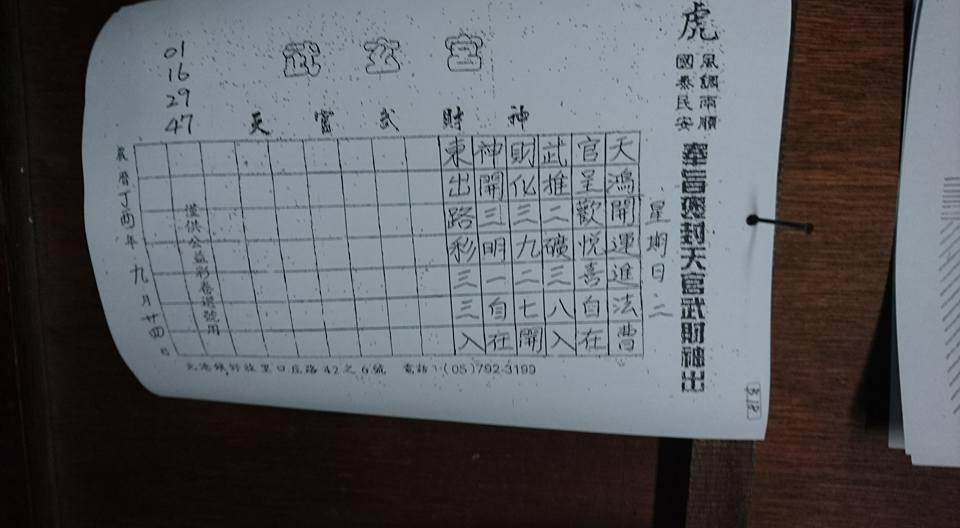 虎
風調雨順
國泰民安
奉旨褒封天官武財神出
星期日 二
武玄宮
天官武財神
天鴻開運進法曹
官呈歡悅喜自在
武推二礦三八入
財化三九二七開
神開三明一自在
東出路彩三三入
僅供公益彩卷選號用
01
16
29
47
農曆丁酉年九月廿四日
北港鎮好收里口庄路42之6號 電話:(05)792-3199